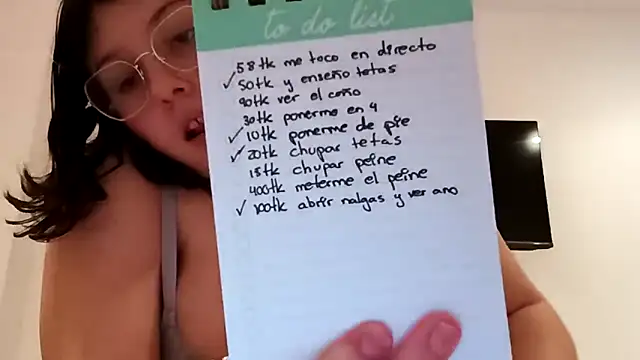 to do list
58tk me toco en directo
✓ 50tk y enseño tetas
90tk ver el coño
30tk ponerme en 4
✓ 10tk ponerme de pie
✓ 20tk chupar tetas
15tk chupar peine
400tk meterme el peine
✓ 100tk abrir nalgas y ver ano